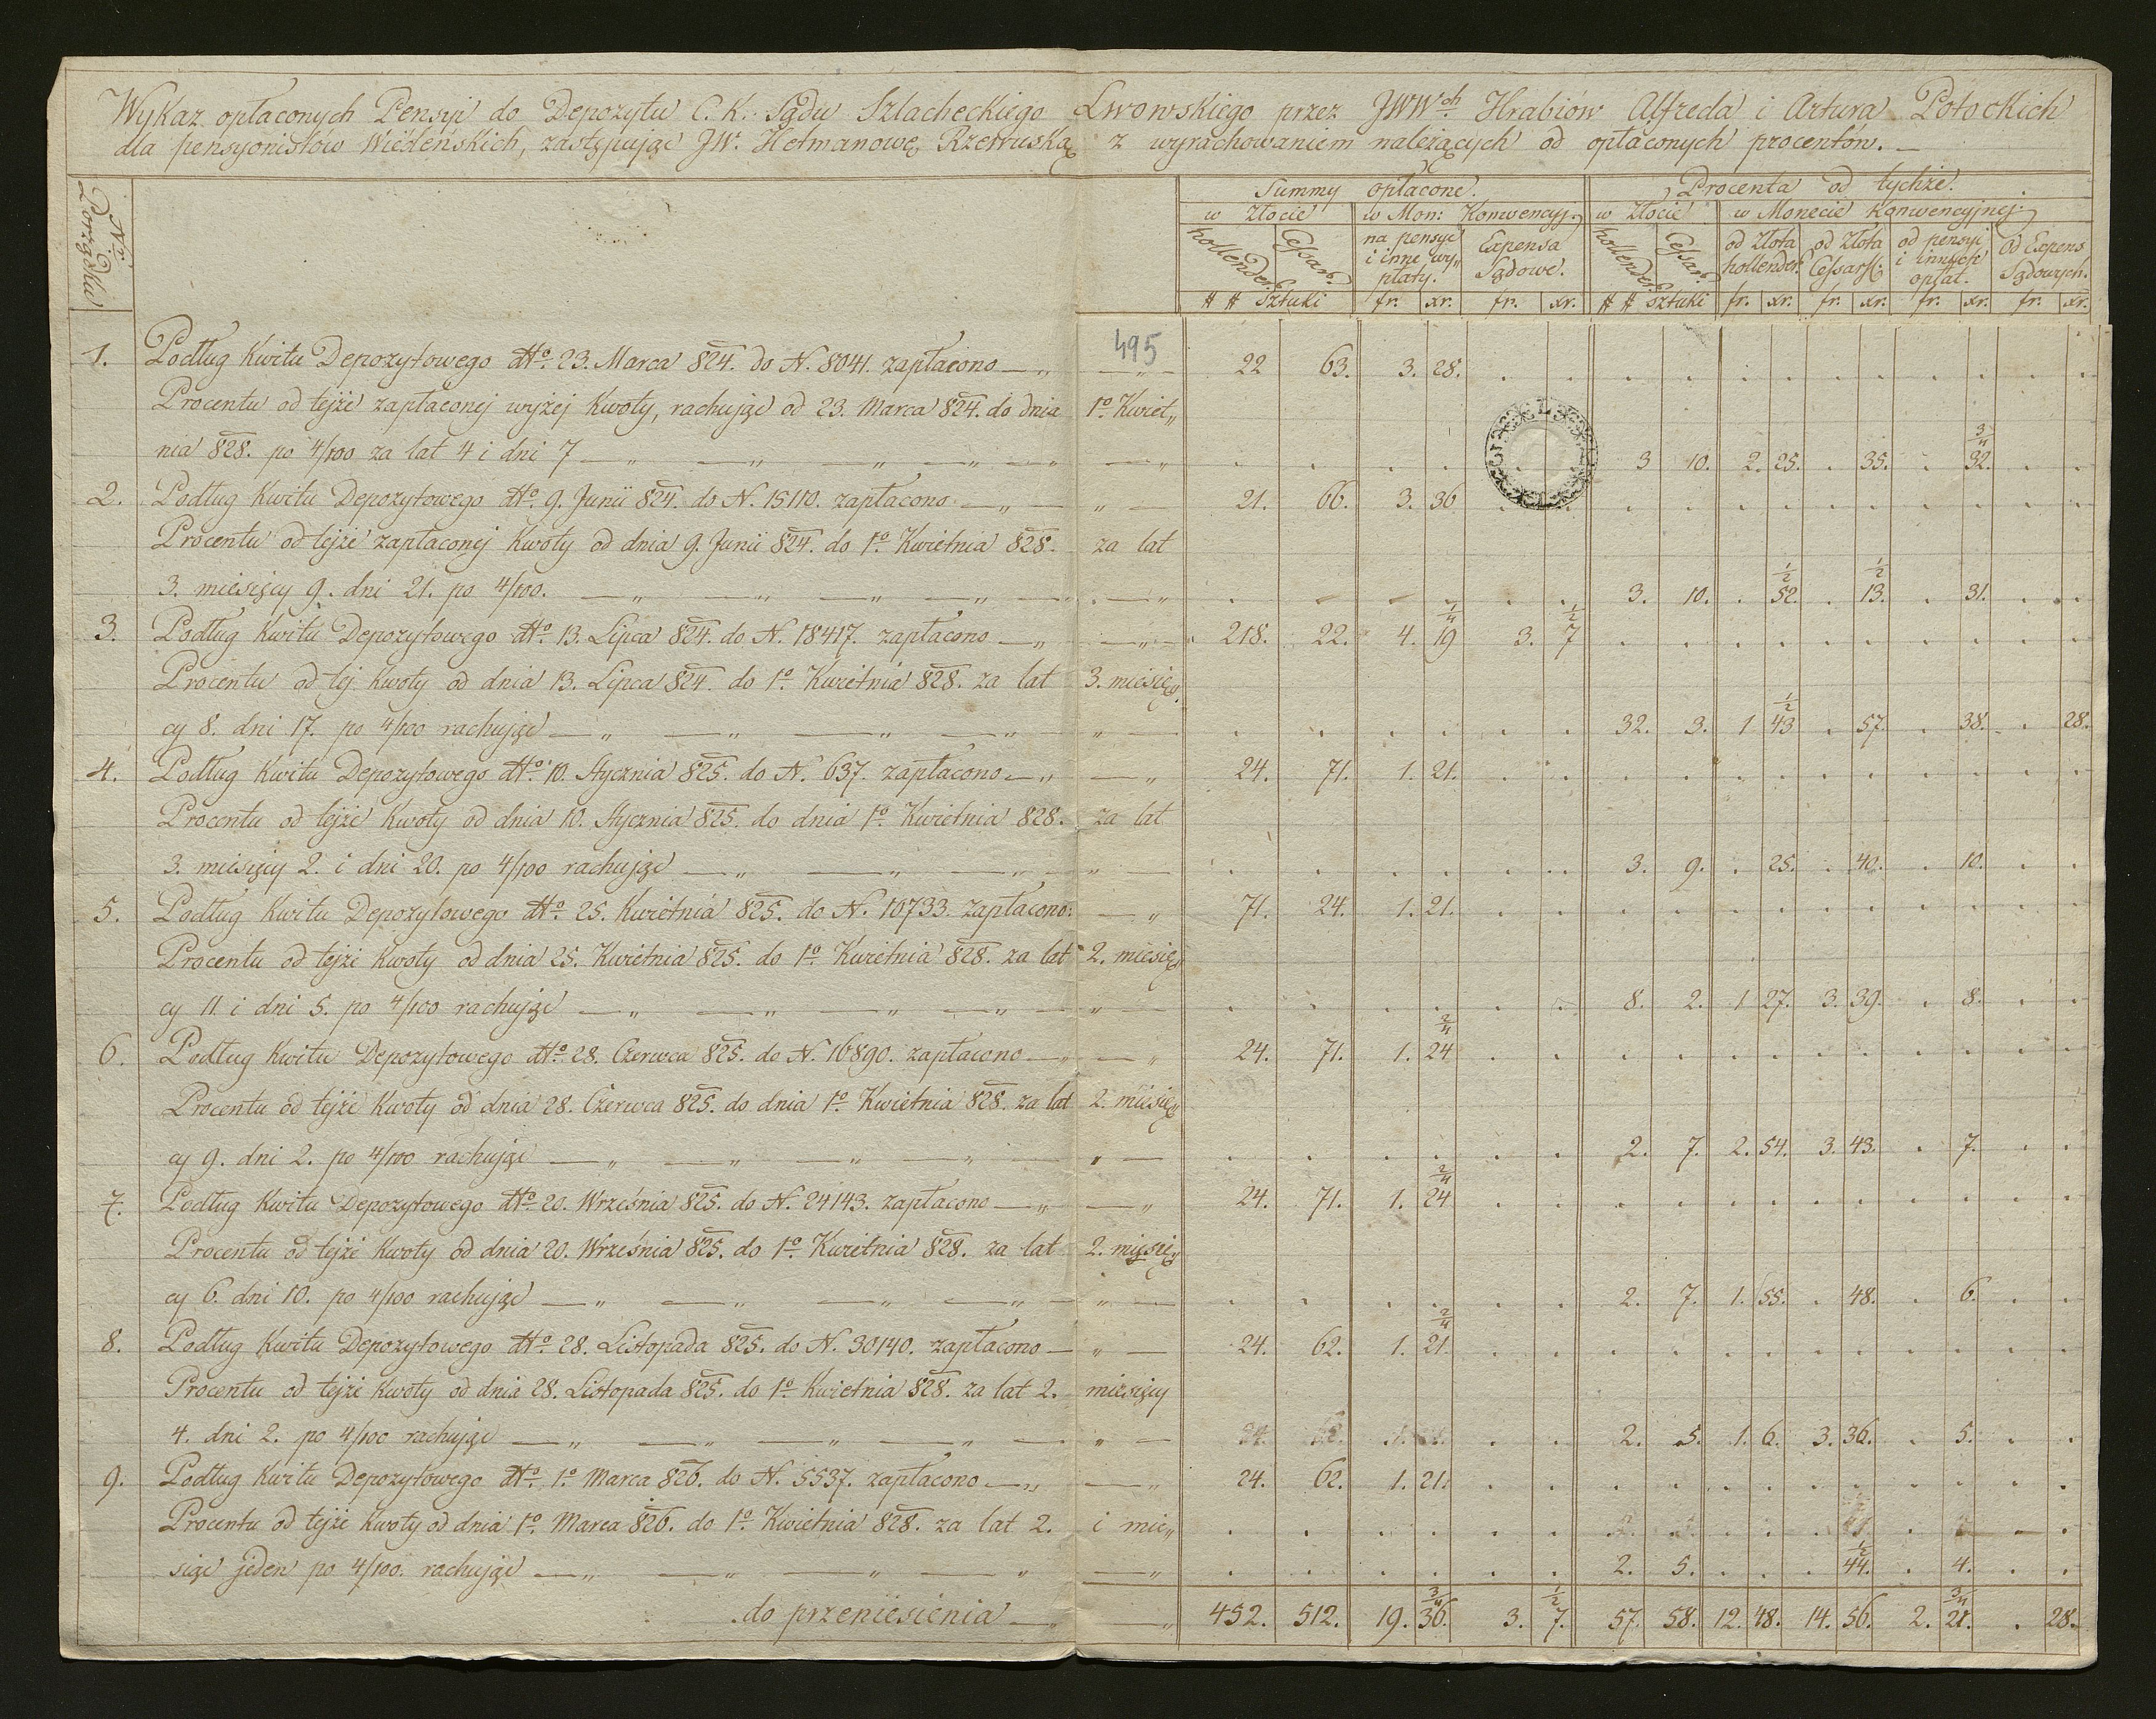 Wykaz opłaconych Pensyi do Depozytu C. K. Sądu Szlacheckiego Lwowskiego przez JWWch. Hrabiów Alfreda i Artura Potockich
dla pensyonistów Wiedeńskich, zastępując JW. Hetmanowę Rzewuską z wyrachowaniem należących od opłaconych procentów. —
Nr. Porządku
Summy opłacone. Procenta od tychże.
w Złocie w Mon: Konwencyj. w Złocie w Monecie Konwencyjnej.
hollender. Cesar. na pensye i inne wypłaty. Expensa Sądowe. hollender. Cesar. od Złota hollender. od Złota Cessarsk: od pensyi i innych opłat. Od Expens Sądowych.
## Sztuki fr. xr. fr. xr. ## Sztuki fr. xr. fr. xr. fr. xr. fr. xr.
495
1. Podług Kwitu Depozytowego dto. 23. Marca 824. do N. 8041. zapłacono — 22 63. 3. 28.
Procentu od tejże zapłaconej wyżej Kwoty, rachując od 23. Marca 824. do dnia 1o. Kwiet„
nia 828. po 4/100 za lat 4 i dni 7 — 3 10. 2. 25. 35. 32. 3/4
2. Podług Kwitu Depozytowego dto. 9. Junii 824. do N. 15110. zapłacono — 21. 66. 3. 36
Procentu od tejże zapłaconej Kwoty od dnia 9. Junii 824. do 1o. Kwietnia 828. za lat
3. miesięcy 9. dni 21. po 4/100. — 3. 10. 52. 1/2 13. 1/2 31.
3. Podług Kwitu Depozytowego dto. 13. Lipca 824. do N. 18417. zapłacono — 218. 22. 4. 19 1/4 3. 7 1/2
Procentu od tej Kwoty od dnia 13. Lipca 824. do 1o. Kwietnia 828. za lat 3. miesię„
cy 8. dni 17. po 4/100 rachując — 32. 3. 1 43 1/2 57. 38. 28.
4. Podług Kwitu Depozytowego dto. 10. Stycznia 825. do N. 637. zapłacono — 24. 71. 1. 21.
Procentu od tejże Kwoty od dnia 10. Stycznia 825. do dnia 1o. Kwietnia 828. za lat
3. miesięcy 2. i dni 20. po 4/100 rachując — 3. 9. 25. 40. 10.
5. Podług Kwitu Depozytowego dto. 25. Kwietnia 825. do N. 10733. zapłacono: — 71. 24. 1. 21.
Procentu od tejże Kwoty od dnia 25. Kwietnia 825. do 1o. Kwietnia 828. za lat 2. miesię„
cy 11 i dni 5. po 4/100 rachując — 8. 2. 1 27. 3. 39. 8.
6. Podług Kwitu Depozytowego dto. 28. Czerwca 825. do N. 16890. zapłacono — 24. 71. 1. 24 2/4
Procentu od tejże Kwoty od dnia 28. Czerwca 825. do dnia 1o. Kwietnia 828. za lat 2. miesię„
cy 9. dni 2. po 4/100 rachując — 2. 7. 2. 54. 3. 43. 7.
7. Podług Kwitu Depozytowego dto. 20. Września 825. do N. 24143. zapłacono — 24. 71. 1. 24 2/4
Procentu od tejże Kwoty od dnia 20. Września 825. do 1o. Kwietnia 828. za lat 2. miesię„
cy 6. dni 10. po 4/100 rachując — 2. 7. 1. 55. 48. 6.
8. Podług Kwitu Depozytowego dto. 28. Listopada 825. do N. 30140. zapłacono — 24. 62. 1. 21. 2/4
Procentu od tejże Kwoty od dnia 28. Listopada 825. do 1o. Kwietnia 828. za lat 2. miesięcy
4. dni 2. po 4/100 rachując — 2. 5. 1. 6. 3. 36. 5.
9. Podług Kwitu Depozytowego dto. 1o. Marca 826. do N. 5537. zapłacono — 24. 62. 1. 21.
Procentu od tejże Kwoty od dnia 1o. Marca 826. do 1o. Kwietnia 828. za lat 2. i mie„
siąc jeden po 4/100. rachując — 2. 5. 44. 1/2 4.
do przeniesienia — 452. 512. 19. 36. 3/4 3. 7. 1/2 57. 58. 12. 48. 14. 56. 2. 21. 3/4 28.